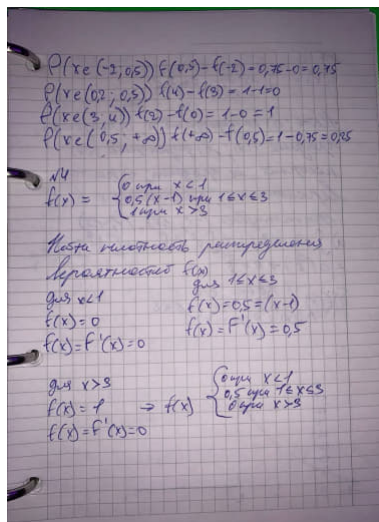 P(xє(-2; 0,5)) f(0,5)-f(-2)=0,75-0=0,75
P(xє(0,2; 0,5)) f(4)-f(3)=1-1=0
P(xє(3,4)) f(2)-f(0)=1-0=1
P(xє(0,5; +∞)) f(+∞)-f(0,5)=1-0,75=0,25
№4
f(x) = { 0 при x<1
0,5(x-1) при 1≤x≤3
1 при x>3
плотность распределения
вероятностей f(x)
для x<1
f(x)=0
f(x)=F'(x)=0
для 1≤x≤3
f(x)=0,5=(x-1)
f(x)=F'(x)=0,5
для x>3
f(x)=1
f(x)=F'(x)=0
→ f(x) { 0 при x<1
0,5 при 1≤x≤3
0 при x>3